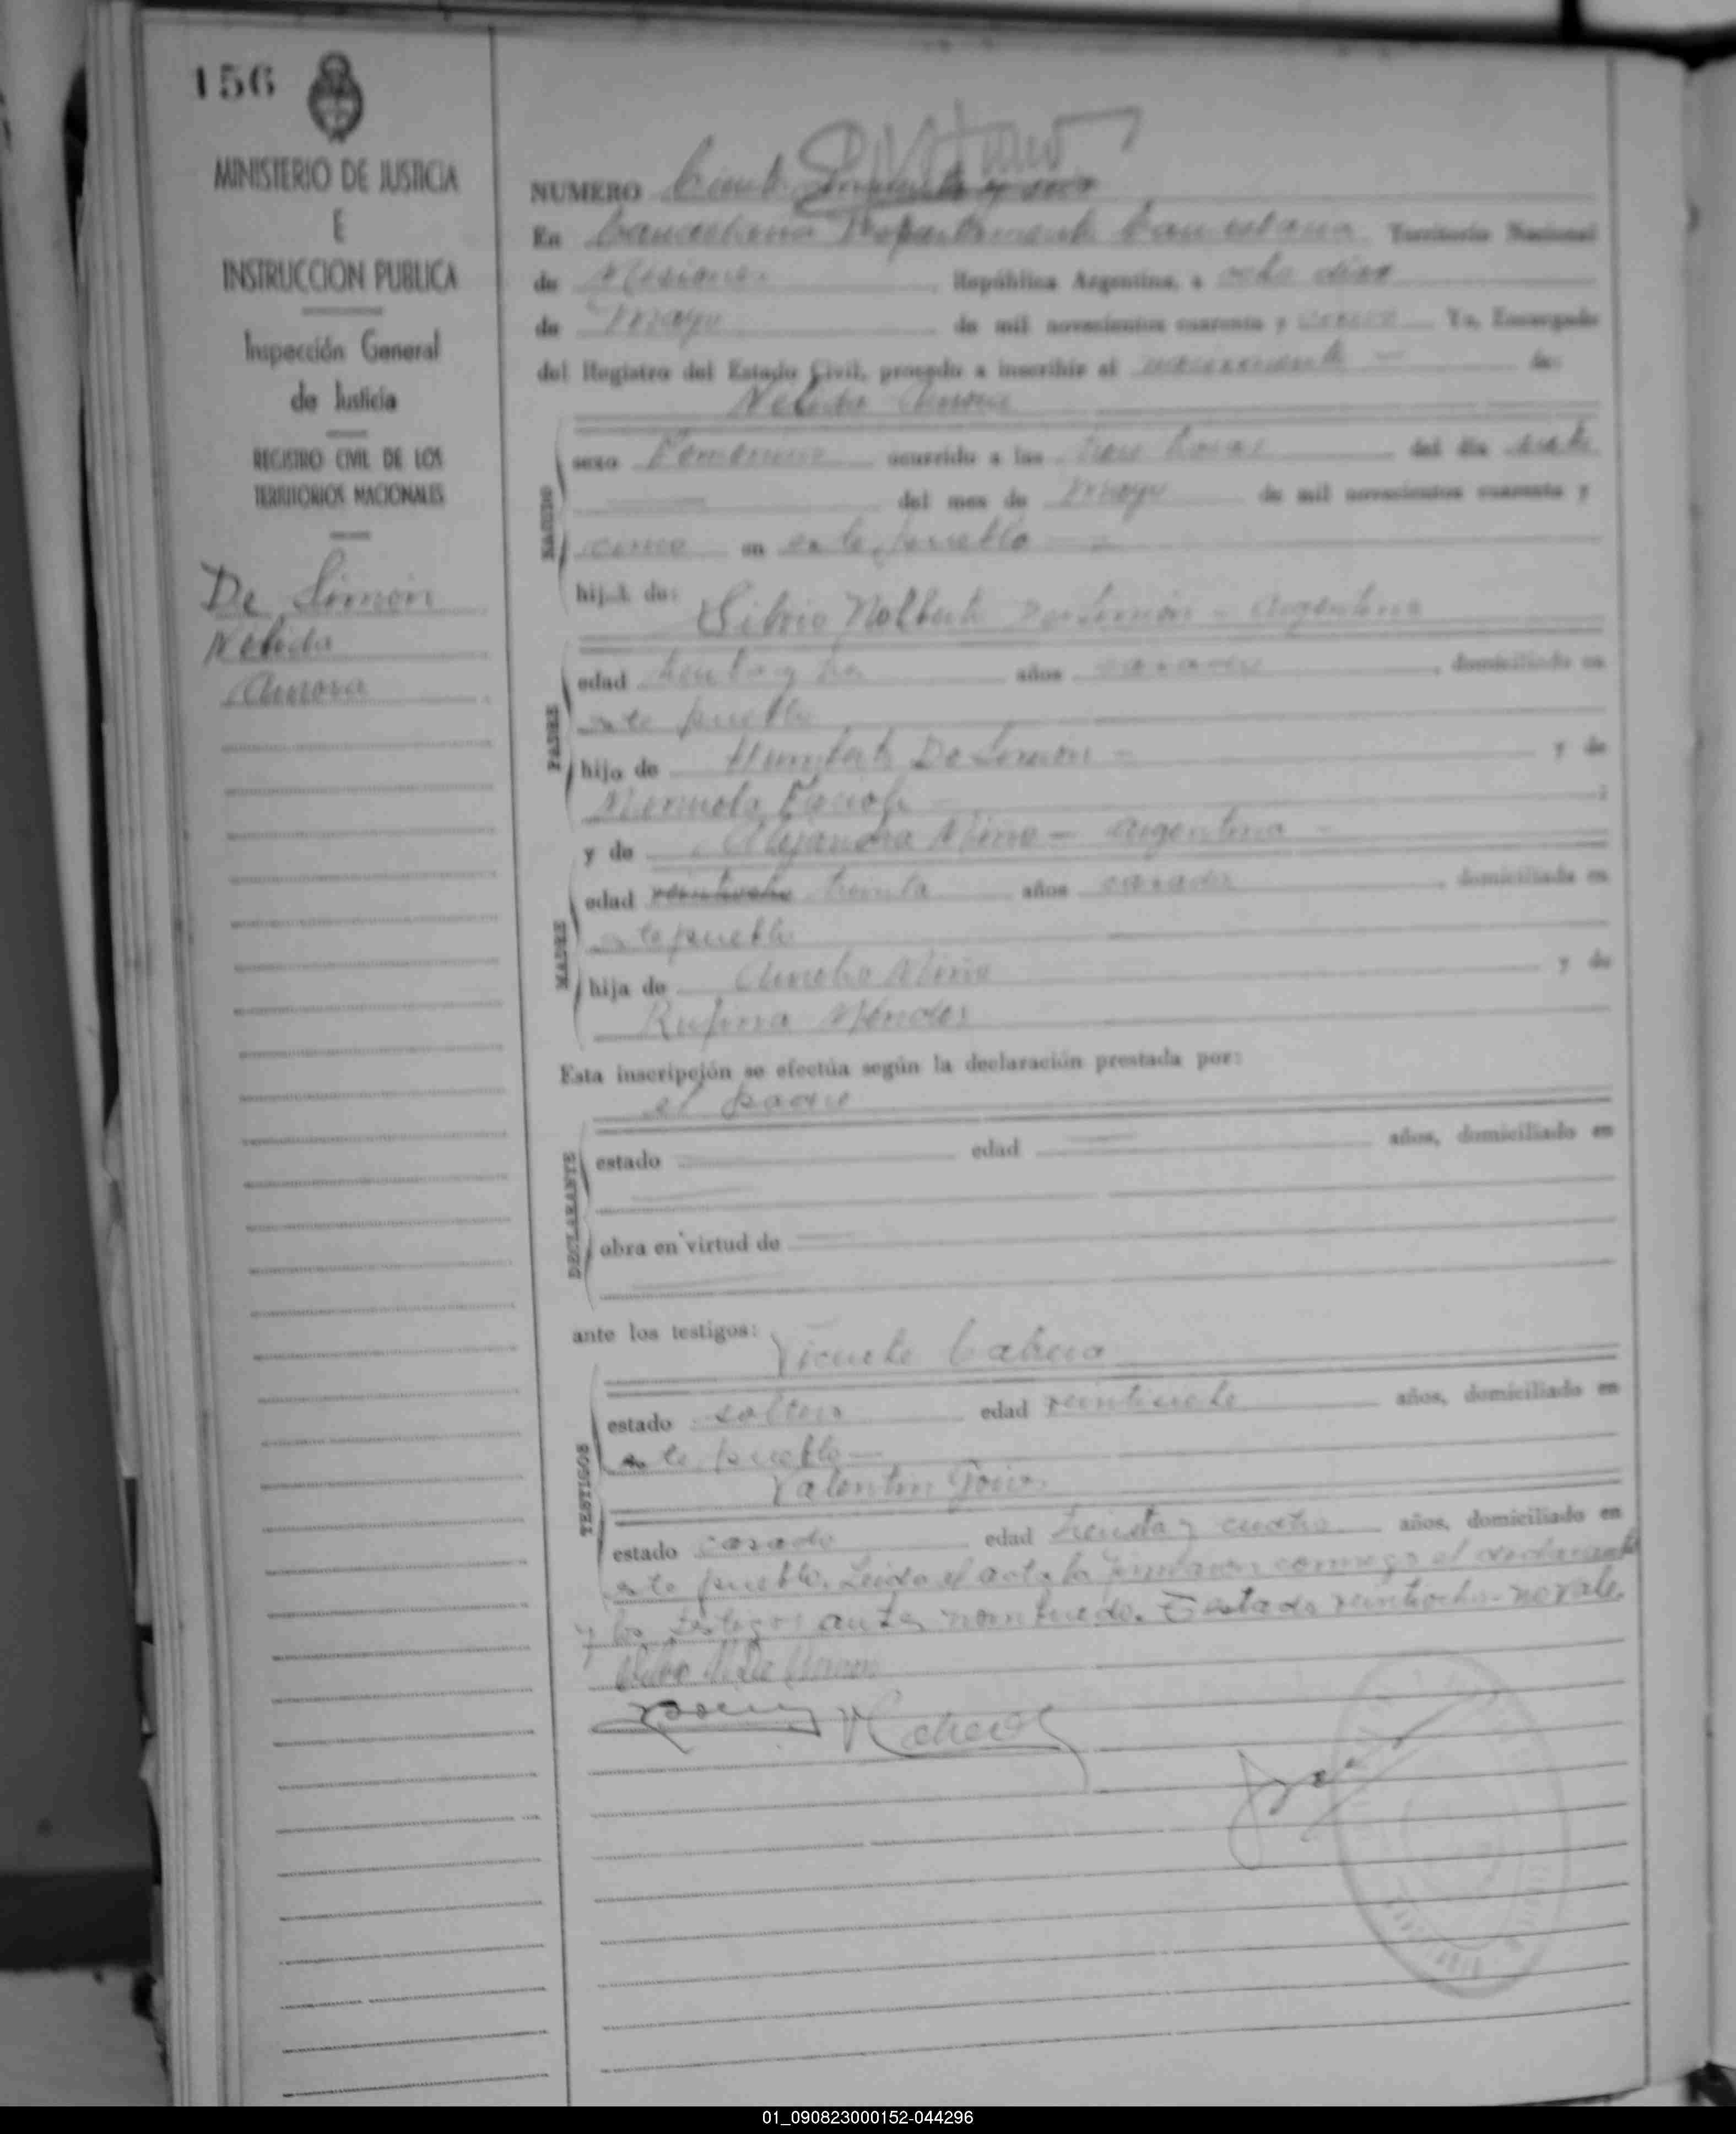 156
MINISTERIO DE JUSTICIA
E
INSTRUCCION PUBLICA
Inspección General
de Justicia
REGISTRO CIVIL DE LOS
TERRITORIOS NACIONALES
De Simon
Nelida
Aurora
NUMERO Ciento cincuenta y seis
En Candelaria Departamento Candelaria Territorio Nacional
de Misiones República Argentina, a ocho dias
de mayo de mil novecientos cuarenta y cinco Yo, Encargado
del Registro del Estado Civil, procedo a inscribir el nacimiento — de:
Nelida Aurora
NACIDO
sexo Femenino ocurrido a las horas del dia siete
del mes de mayo de mil novecientos cuarenta y
cinco en este pueblo
hija de:
Silvio Nolberto De Simón - argentino
PADRE
edad treinta y años casado, domiciliado en
este pueblo
hijo de Humberto De Simon - y de
;
y de Alejandra Mino - argentina -
MADRE
edad veintiocho treinta años casada, domiciliada en
este pueblo
hija de Amelio Mino y de
Rufina Mendez
Esta inscripción se efectúa según la declaración prestada por:
el padre
DECLARANTE
estado edad años, domiciliado en
obra en virtud de
ante los testigos:
Vicente Cabrera
TESTIGOS
estado soltero edad veintiocho años, domiciliado en
este pueblo —
Valentin
estado casado edad treinta y cuatro años, domiciliado en
este pueblo. Leida el acta la firmaron conmigo el declarante
y los testigos antes nombrado. Testado veintiocho - no vale.
01_090823000152-044296